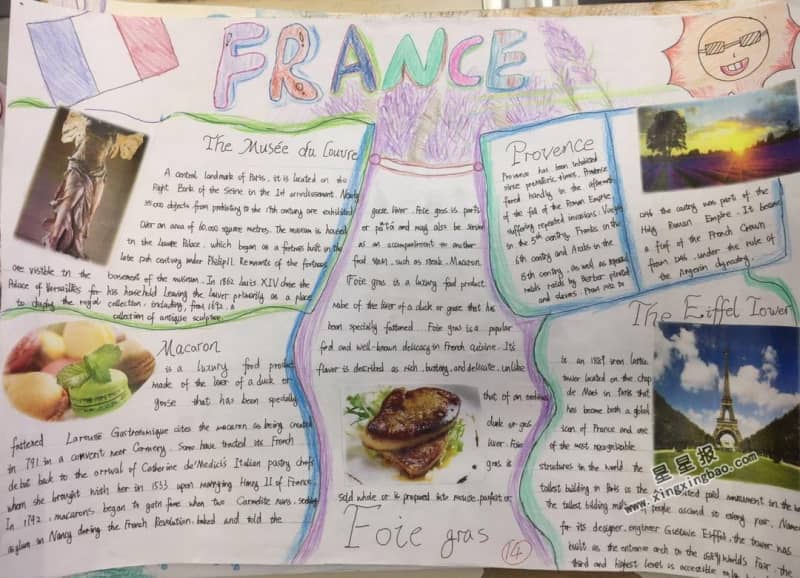 FRANCE
The Musée du Louvre
A central landmark of Paris. it is located on the
Right Bank of the Seine in the 1st arrondissement. Nearly
35000 objects from prehistory to the 19th century are exhibited
over an area of 60,000 square metres. The museum is housed
in the Louvre Palace. which began as a fortress built in the
late 12th century under Philip II. Remnants of the fortress
are visible in the basement of the museum. In 1862 Louis XIV chose the
Palace of Versailles for his household leaving the Louvre primarily as a place
to display the royal collection. including, from 1692. a
collection of antique sculpture
Macaron
is a luxury food product
made of the liver of a duck or
goose that has been specially
fattened Larousse Gastronomique cites the macaron as being created
in 791 in a convent near Cormery. Some have traced its French
debut back to the arrival of Catherine de'Medici's Italian pastry chefs
whom she brought with her in 1533 upon marrying Henry II of France
In 1792. macarons began to gain fame when two Carmelite nuns. seeking
asylum in Nancy during the French Revolution. baked and sold the
goose liver. Foie gras is parfa
or pâtá and may also be served
as an accompaniment to another
food item. such as steak. Macaron
(Foie gras is a luxury food product
made of the liver of a duck or goose that has
been specially fattened. Foie gras is a popular
and well-known delicacy in French cuisine. Its
flavor is described as rich. buttery, and delicate. unlike
that of an ordinary
duck or goose
liver. Foie
gras is
sold whole or is prepared into mousse. parfait or
Foie gras
14
Provence
Provence has been inhabited
since prehistoric times. Provence
fared in the aftermath
of the fall of the Roman Empire.
suffering repeated invasions: Visigoths
in the 5th century. Franks in the
6th century and Arabs in the
8th century. as well as repeated
raids by Berber pirates
and slavers. From 1032 to
1246 the country was part of the
Holy Roman Empire. It became
a fief of the French Crown
from 1246. under the rule of
the Angevin dynasty.
The Eiffel Tower
is an 1889 iron lattice
tower located on the Champ
de Mars in Paris that
has become both a global
icon of France and one
of the most recognizable
structures in the world the
tallest building in Paris is the visited paid monument in the
the tallest building people ascend it every year. Named
for its designer. engineer Gustave Eiffel. the tower was
built as the entrance arch to the 1889 World's Fair. the
third and highest level is accessible
星星报
www.xingxingbao.com